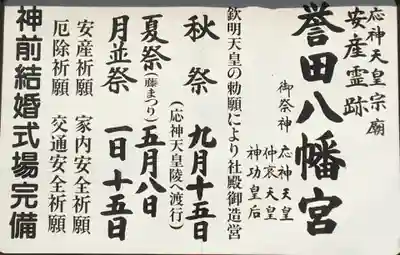 応神天皇宗廟
安産霊跡
誉田八幡宮
御祭神
応神天皇
仲哀天皇
神功皇后
欽明天皇の勅願により社殿御造営
秋祭 九月十五日
(応神天皇陵へ渡行)
夏祭(藤まつり)五月八日
月並祭 一日 十五日
安産祈願 家内安全祈願
厄除祈願 交通安全祈願
神前結婚式場完備